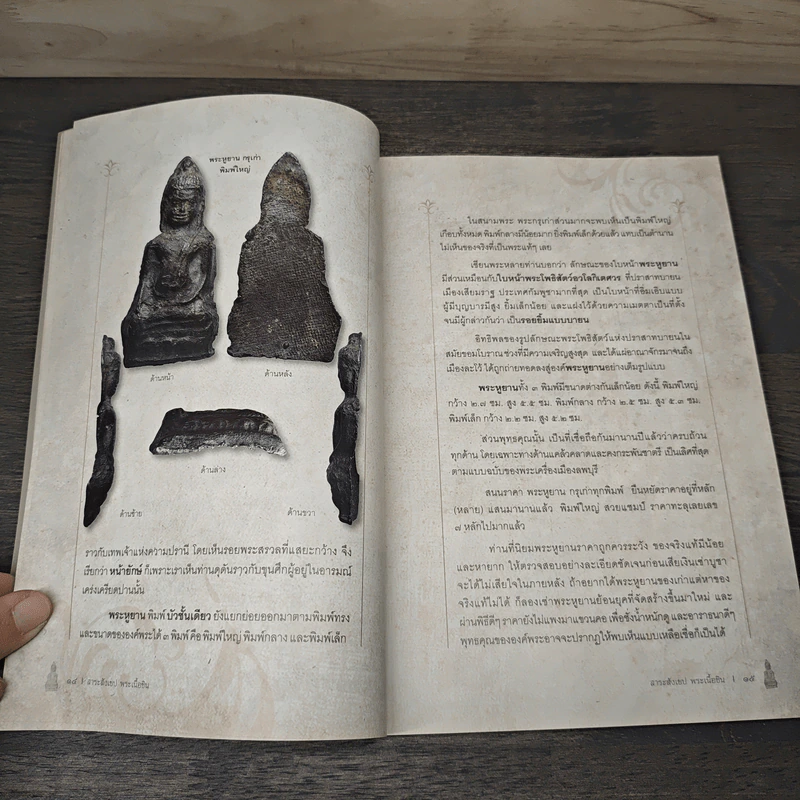 พระหูยาน กรุเก่า
พิมพ์ใหญ่
ด้านหน้า
ด้านหลัง
ด้านล่าง
ด้านซ้าย
ด้านขวา
ราวกับเทพเจ้าแห่งความปรานี โดยเห็นรอยพระสรวลที่แสยะกว้าง จึง
เรียกว่า หน้ายักษ์ ก็เพราะเราเห็นท่านดุดันราวกับขุนศึกผู้อยู่ในอารมณ์
เคร่งเครียดปานนั้น
พระหูยาน พิมพ์ บัวชั้นเดียว ยังแยกย่อยออกมาตามพิมพ์ทรง
และขนาดขององค์พระได้ ๓ พิมพ์ คือ พิมพ์ใหญ่ พิมพ์กลาง และพิมพ์เล็ก
๑๔ | สาระสังเขป พระเนื้อชิน
ในสนามพระ พระกรุเก่าส่วนมากจะพบเห็นเป็นพิมพ์ใหญ่
เกือบทั้งหมด พิมพ์กลางมีน้อยมาก ยิ่งพิมพ์เล็กด้วยแล้ว แทบเป็นตำนาน
ไม่เห็นของจริงที่เป็นพระแท้ๆ เลย
เซียนพระหลายท่านบอกว่า ลักษณะของใบหน้าพระหูยาน
มีส่วนเหมือนกับใบหน้าพระโพธิสัตว์อวโลกิเตศวร ที่ปราสาทบายน
เมืองเสียมราฐ ประเทศกัมพูชามากที่สุด เป็นใบหน้าที่อิ่มเอิบแบบ
ผู้มีบุญบารมีสูง ยิ้มเล็กน้อย และแฝงไว้ด้วยความเมตตาเป็นที่ตั้ง
จนมีผู้กล่าวกันว่า เป็นรอยยิ้มแบบบายน
อิทธิพลของรูปลักษณะพระโพธิสัตว์แห่งปราสาทบายนใน
สมัยขอมโบราณช่วงที่มีความเจริญสูงสุด และได้แผ่อาณาจักรมาจนถึง
เมืองละโว้ ได้ถูกถ่ายทอดลงสู่องค์พระหูยานอย่างเต็มรูปแบบ
พระหูยานทั้ง ๓ พิมพ์มีขนาดต่างกันเล็กน้อย ดังนี้ พิมพ์ใหญ่
กว้าง ๒.๗ ซม. สูง ๕.๕ ซม. พิมพ์กลาง กว้าง ๒.๕ ซม. สูง ๕.๓ ซม.
พิมพ์เล็ก กว้าง ๒.๒ ซม. สูง ๕.๒ ซม.
ส่วนพุทธคุณนั้น เป็นที่เชื่อถือกันมานานปีแล้วว่าครบถ้วน
ทุกด้าน โดยเฉพาะทางด้านแคล้วคลาดและคงกระพันชาตรี เป็นเลิศที่สุด
ตามแบบฉบับของพระเครื่องเมืองลพบุรี
สนนราคา พระหูยาน กรุเก่าทุกพิมพ์ ยืนหยัดราคาอยู่ที่หลัก
(หลาย) แสนมานานแล้ว พิมพ์ใหญ่ สวยแชมป์ ราคาทะลุเลยเลข
๗ หลักไปมากแล้ว
ท่านที่นิยมพระหูยานราคาถูกควรระวัง ของจริงแท้มีน้อย
และหายาก ให้ตรวจสอบอย่างละเอียดชัดเจนก่อนเสียเงินเช่าบูชา
จะได้ไม่เสียใจในภายหลัง ถ้าอยากได้พระหูยานของเก่าแต่หาของ
จริงแท้ไม่ได้ ก็ลองเช่าพระหูยานย้อนยุคที่จัดสร้างขึ้นมาใหม่ และ
ผ่านพิธีดีๆ ราคายังไม่แพงมาแขวนคอ เพื่อชั่งน้ำหนักดู และอาราธนาดีๆ
พุทธคุณขององค์พระอาจจะปรากฏให้พบเห็นแบบเหลือเชื่อก็เป็นได้
สาระสังเขป พระเนื้อชิน | ๑๕